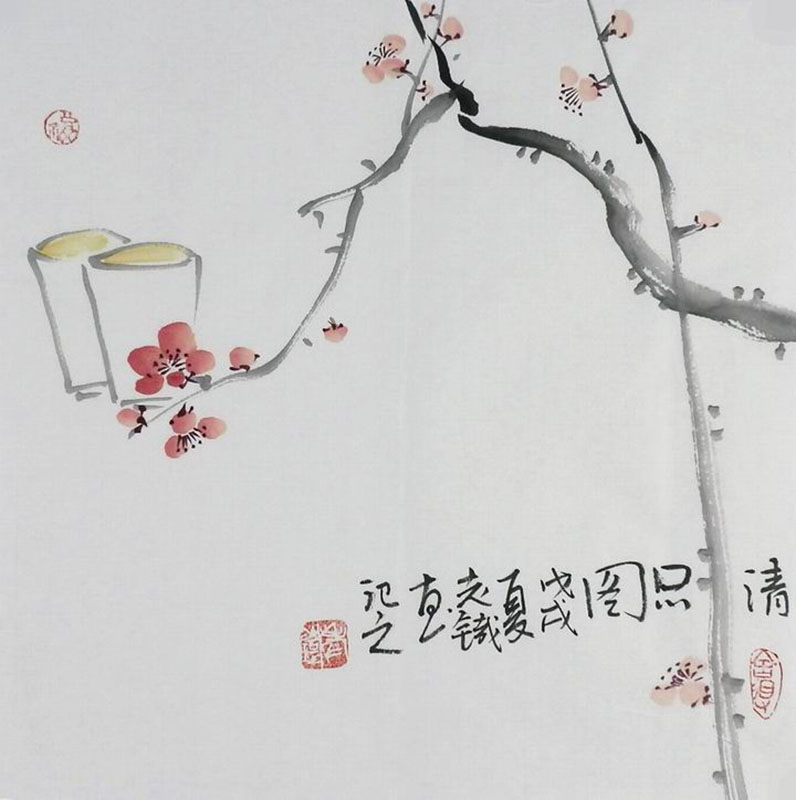 清
品
图
戊戌
夏
老鐵
记之